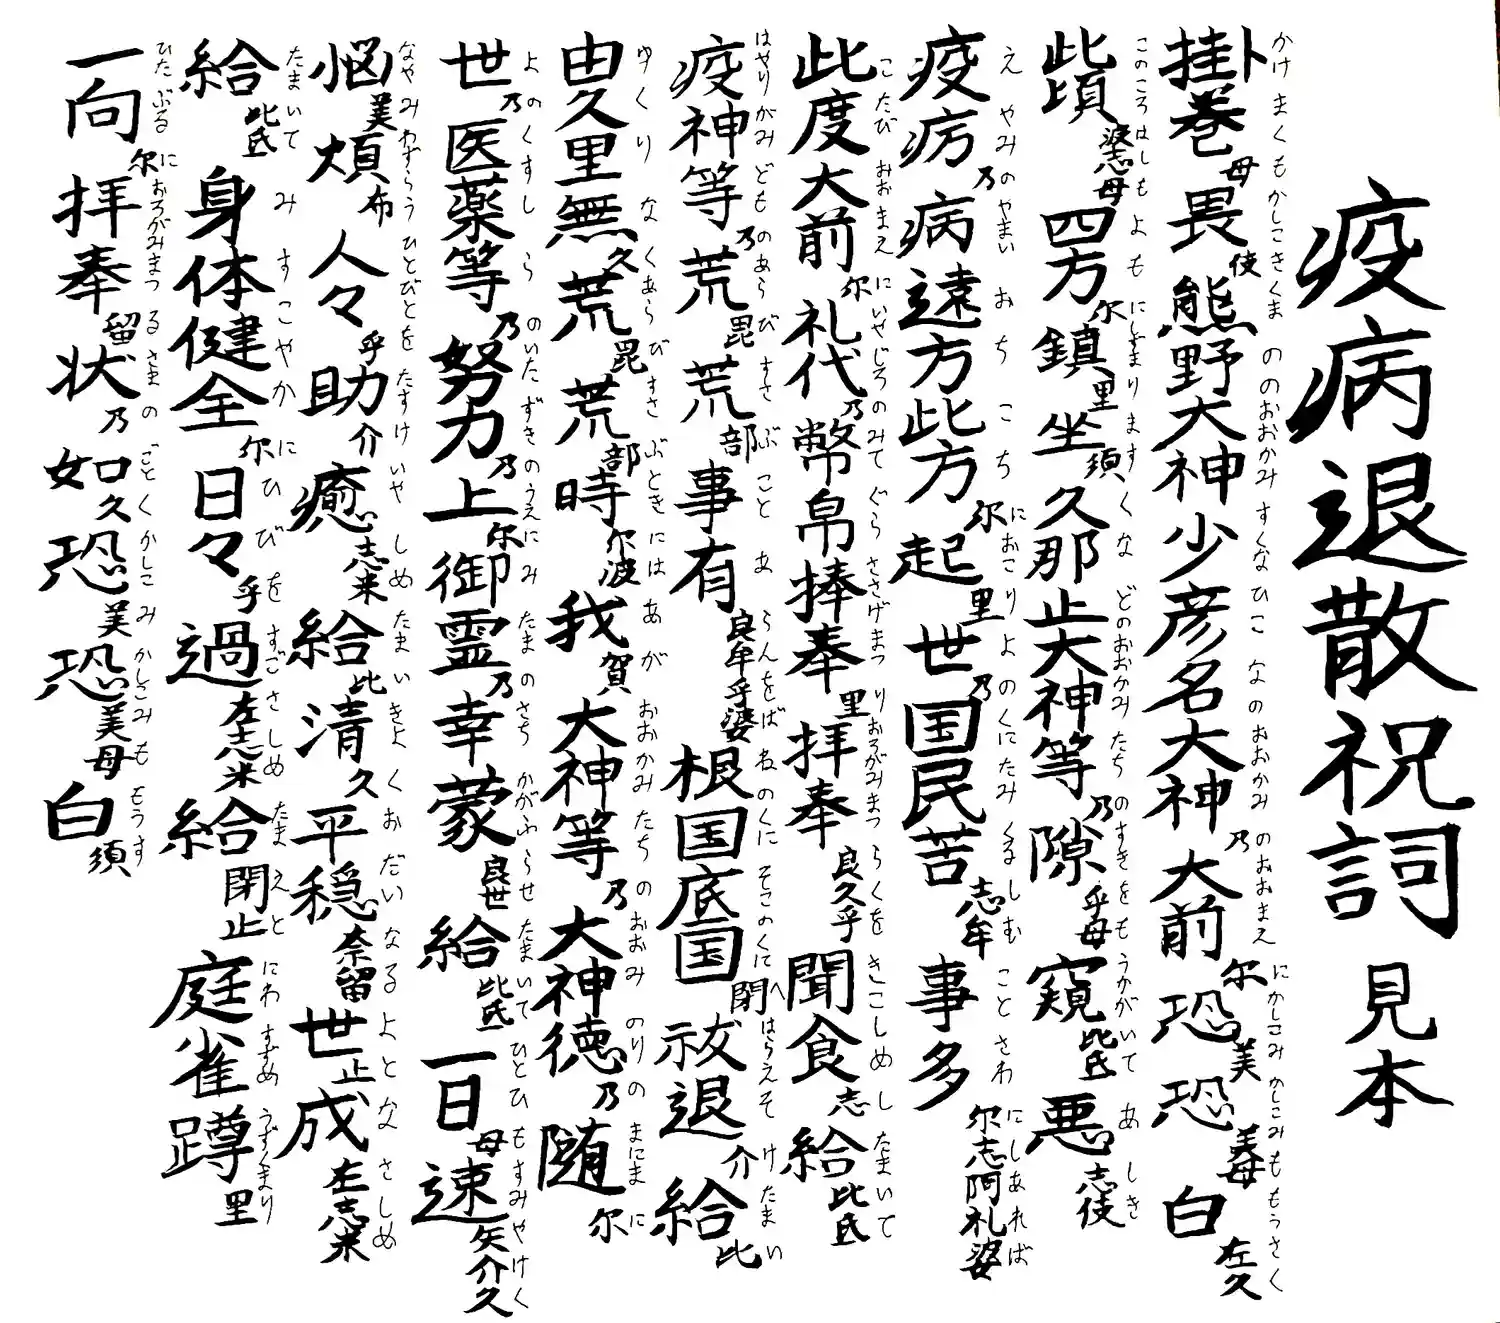 疫病退散祝詞 見本
掛巻母畏伎熊野大神少彦名大神乃大前尓恐美恐美母白左久
かけまくもかしこきくまののおおかみすくなひこなのおおかみのおおまえにかしこみかしこみももうさく
此頃婆志母四方尓鎮里坐須久那止大神等乃隙乎母窺比氐悪志伎
このころはしもよもにしずまりますくなどのおおかみたちのすきをもうかがいてあしき
疫疠乃病遠方此方尓起里世乃国民苦志牟事多尓志阿礼婆
えやみのやまいおちこちにおこりよのくにたみくるしむことさわにしあれば
此度大前尓礼代乃幣帛捧奉里拝奉良久乎聞食志給比氐
こたびみおまえにいやじろのみてぐらささげまつりおろがみまつらくをきこしめしたまいて
疫神等乃荒毘荒部事有良牟乎婆根国底国閇祓退介給比
はやりがみどものあらびすさぶことあらんをばねのくにそこのくにへはらえそけたまい
由久里無久荒毘荒部時尓波我賀大神等乃大神徳乃随尓
ゆくりなくあらびすさぶときにはあがおおかみたちのおおみのりのまにまに
世乃医薬等乃努力乃上尓御霊乃幸蒙良世給比氐一日母速矢介久
よのくすしらのいたずきのうえにみたまのさちかがふらせたまいてひとひもすみやけく
悩美煩布人々乎助介癒志米給比清久平穏奈留世止成左志米
なやみわずらうひとびとをたすけいやしめたまいきよくおだいなるよとなさしめ
給比氐身体健全尓日々乎過左志米給閇止庭雀蹲里
たまいてみすこやかにひびをすごさしめたまえとにわすずめうずくまり
一向尓拝奉留状乃如久恐美恐美母白須
ひたぶるにおろがみまつるさまのごとくかしこみかしこみももうす